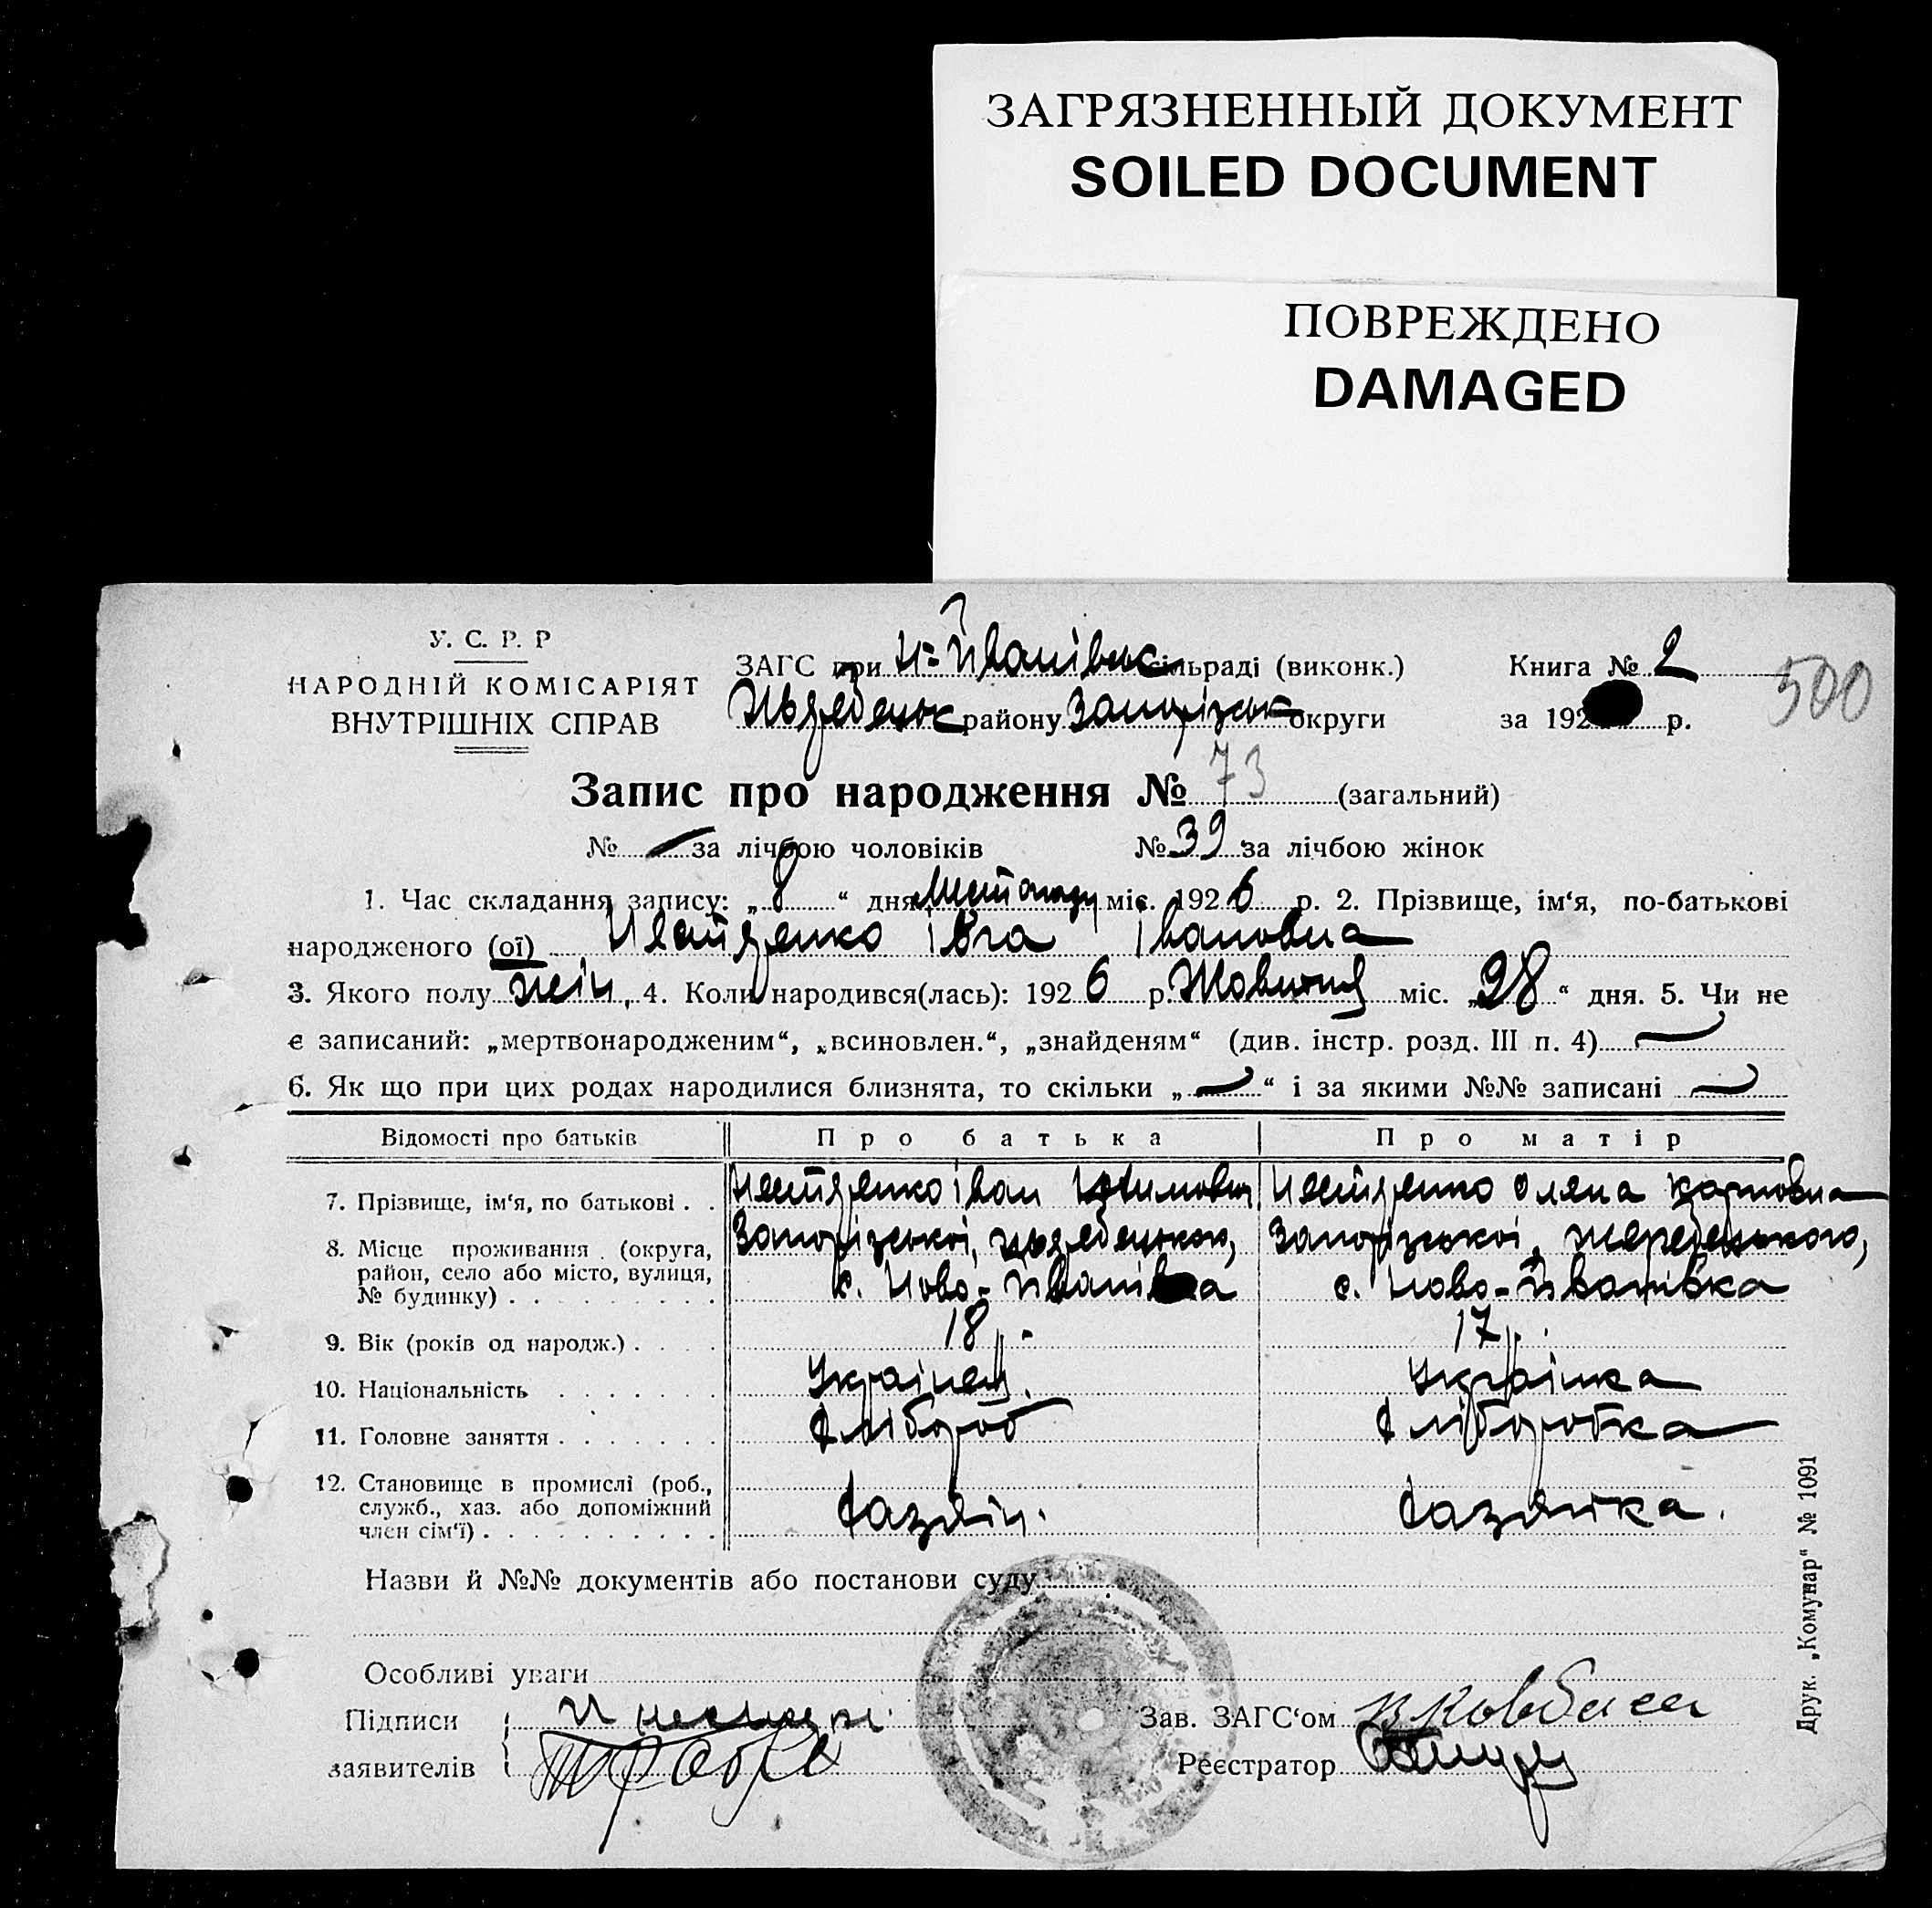 ЗАГРЯЗНЕННЫЙ ДОКУМЕНТ
SOILED DOCUMENT
ПОВРЕЖДЕНО
DAMAGED
У. С. Р. Р
НАРОДНІЙ КОМІСАРІЯТ
ВНУТРІШНІХ СПРАВ
ЗАГС при Н-Йванівськ сільраді (виконк.)
району Запорізьк округи
Книга № 2
за 192 р.
500
Запис про народження № 73 (загальний)
№ — за лічбою чоловіків № 39 за лічбою жінок
1. Час складання запису: „8“ дня Листопаду міс. 1926 р. 2. Прізвище, ім‘я, по-батькові
народженого (ої) Нестеренко Івга Івановна
3. Якого полу жін, 4. Коли народився(лась): 1926 р. Жовтня міс. „28“ дня. 5. Чи не
є записаний: „мертвонародженим“, „всиновлен.“, „знайденям“ (див. інстр. розд. III п. 4) —
6. Як що при цих родах народилися близнята, то скільки „—“ і за якими №№ записані —
Відомості про батьків Про батька Про матір
7. Прізвище, ім‘я, по батькові . . Нестеренко Іван Нестеренко Олена Карповна
8. Місце проживання (округа, район, село або місто, вулиця, № будинку) . Запорізької, с. Ново-Йванівка Запорізької, Жеребецького, с. Ново-Йванівка
9. Вік (років од народж.) . 18 р. 17 р.
10. Національність . Українец. Українка
11. Головне заняття . Хлібороб Хліборобка
12. Становище в промислі (роб., служб., хаз. або допоміжний член сім‘ї) . Хазяін. Хазяйка.
Назви й №№ документів або постанови суду
Особливі уваги
Підписи
заявителів
Зав. ЗАГС‘ом Ковбаса
Реєстратор
Друк. „Комунар“ № 1091